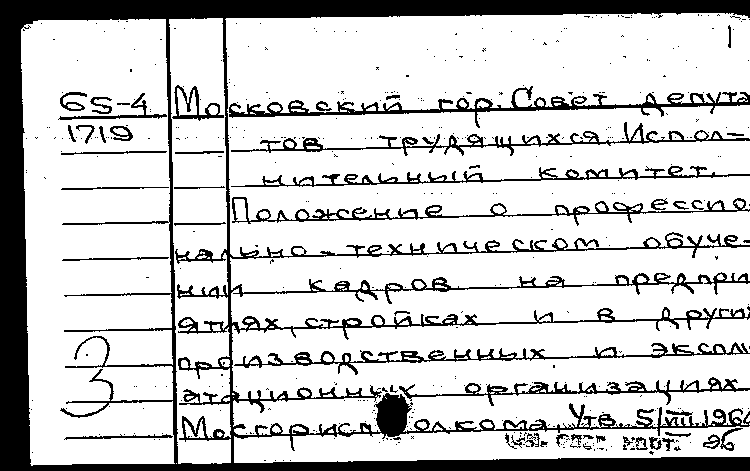 1
65-4 Московский гор. Совет депута
1719
тов трудящихся. Испол-
нительный комитет.
Положение о профессио
нально-техническом обуче-
нии кадров на предпри
ятиях, стройках и в других
производственных и эксплу
атационных организациях
3
Мосгорисполкома. Утв. 5/VIII.1964
26